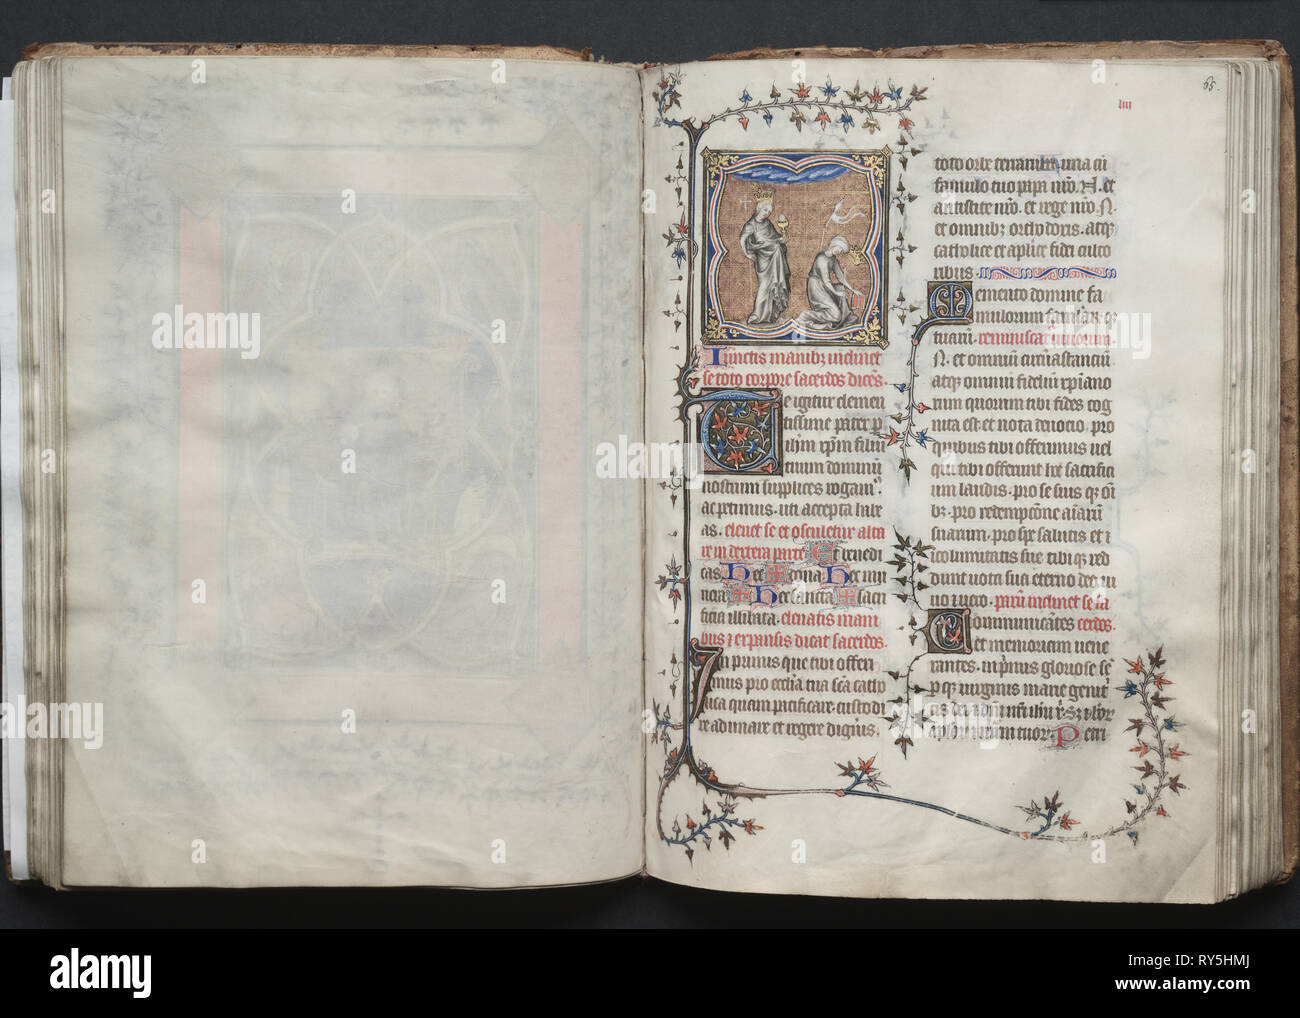 65.
IIII
Iunctis manibz inclinet
se toto corpore sacerdos dicẽs.
Te igitur clemen
tissime pater p
ihm xpm filiũ
tuum dominũ
nostrum supplices rogam⁹.
ac petimus. uti accepta habe
as. eleuet se et osculetur alta
re in dextera parte Et benedi
cas Hec ✠ dona. Hec mu
nera ✠ Hec sancta ✠ sacri
ficia illibata. eleuatis mani
bus ⁊ expansis dicat sacerdos.
In primis que tibi offeri
mus pro ecclia tua sca catho
lica quam pacificare. custodi
re adunare et regere digneris.
toto orbe terrarum una cũ
famulo tuo papa nro. N. et
antistite nro. et rege nro. N.
et omnibz orthodoxis. atqz
catholice et aplice fidei culto
ribus.
Memento domine fa
mulorum famularũ qz
tuarum.
N. et omniũ circũastanciũ
atqz omniũ fideliũ xpiano
rum quorum tibi fides cog
nita est et nota deuocio. pro
quibus tibi offerimus uel
qui tibi offerunt hoc sacrifici
um laudis. pro se suis qz oĩ
bz. pro redempcõne aĩarũ
suarum. pro spe salutis et ĩ
columitatis sue tibi qz red
dunt uota sua eterno deo ui
uo et uero. parũ inclinet se sa
Communicãtes cerdos.
et memoriam uene
rantes. in prĩmis gloriose sẽ
p qz uirginis marie genitri
cis dei
Petri
alamy
Image ID: RY5HMJ
www.alamy.com